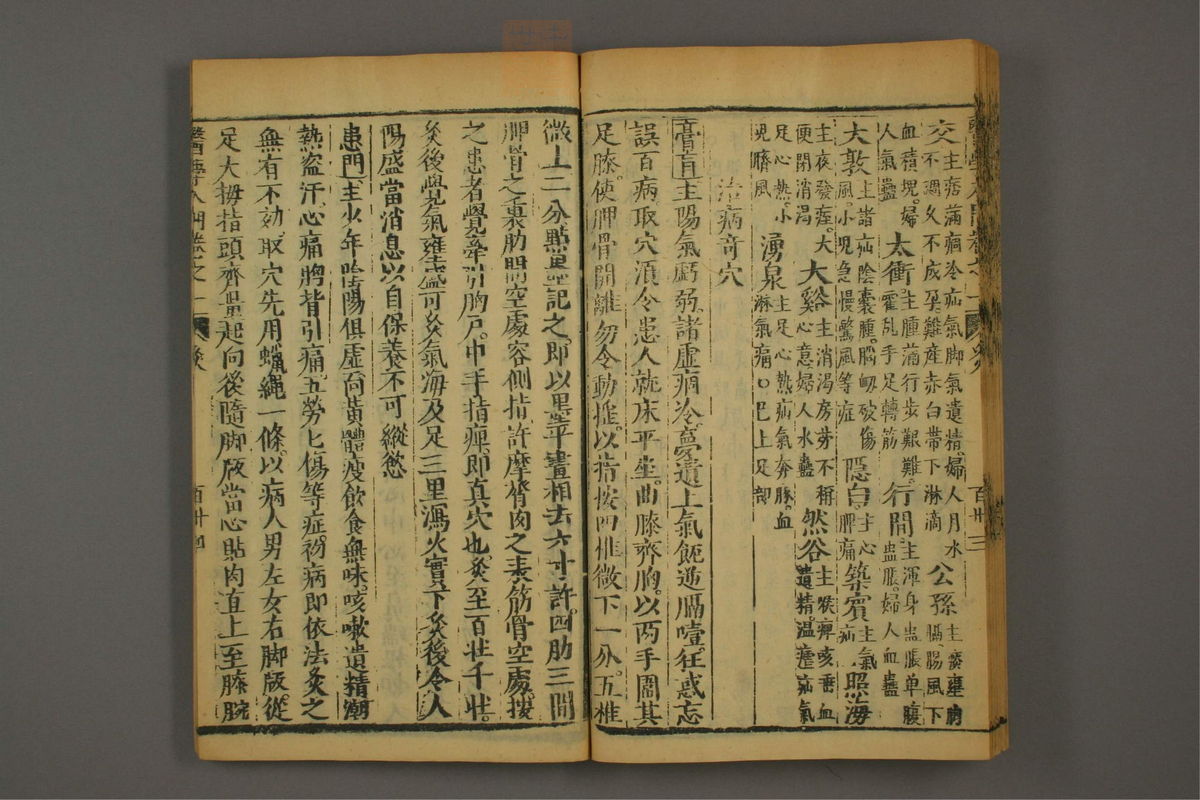 交 主痞滿痼冷疝氣脚氣遺精婦人月水 公孫 主痰壅胸
不調久不成孕難產赤白帶下淋滴 膈腸風下
血積塊婦 太衝 主腫滿行步艱難 行間 主渾身蠱脹单腹
人氣蠱 霍亂手足轉筋 蠱脹婦人血蠱
大敦 主諸疝陰囊腫腦衂破傷 隱白 主心 築賓 主氣 照海
風小兒急慢驚風等症 脾痛 疝
主夜發痓大 大谿 主消渴房劳不稱 然谷 主喉痺咳唾血
便閉消渴 心意婦人水蠱 遺精温瘧疝氣
足心熱小 湧泉 主足心熱疝氣奔豚血
兒臍風 淋氣痛○巳上足部
治病奇穴
膏肓主陽氣虧弱諸虛痼冷夢遺上氣呃逆膈噎狂惑忘
誤百病取穴須令患人就床平坐曲膝齊胸以两手圍其
足膝使胛骨開離勿令動摇以指按四椎微下一分五椎
微上二分點墨記之即以墨平畫相去六寸許四肋三間
胛骨之裏肋間空處容側指許摩膂肉之表筋骨空處按
之患者覺牽引胸户中手指痺即真穴也灸至百壮千壮
灸後覺氣壅盛可灸氣海及足三里瀉火實下灸後令人
陽盛當消息以自保養不可縱慾
患門主少年陰陽俱虛面黃體瘦飲食無味咳嗽遺精潮
熱盗汗心痛胸背引痛五勞七傷等症初病即依法灸之
無有不効取穴先用蠟繩一條以病人男左女右脚版從
足大拇指頭齊量起向後隨脚版當心貼肉直上至膝腕
醫學入門卷之一 灸 百廿四